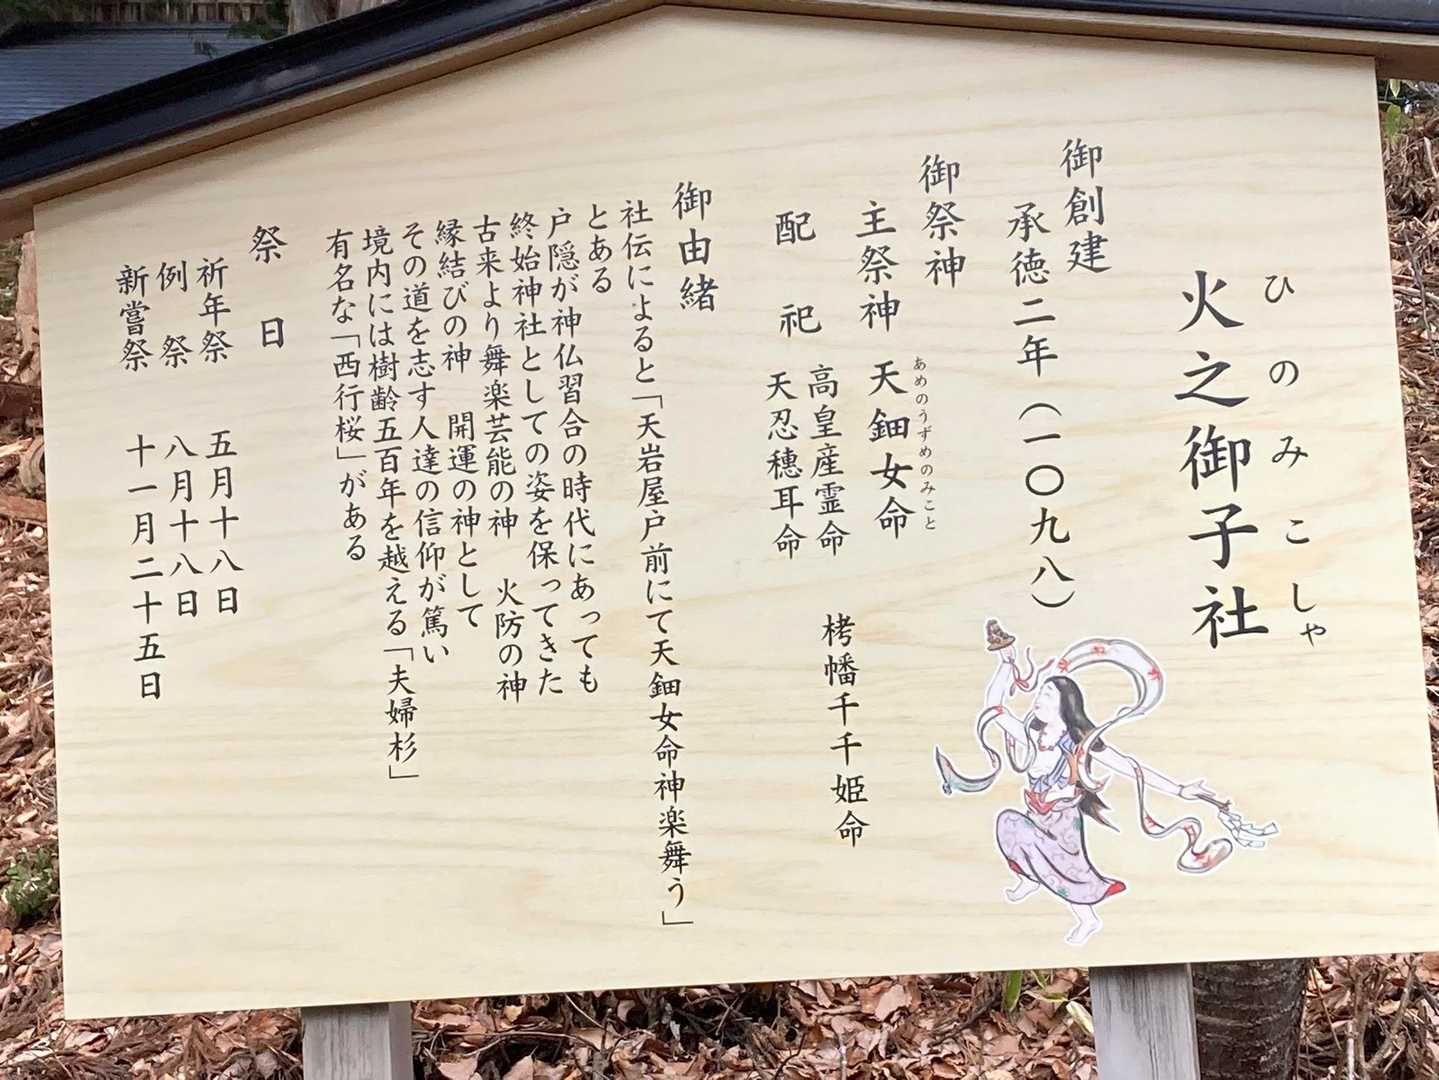 ひのみこしゃ
火之御子社
御創建
承徳二年(一〇九八)
御祭神
主祭神 天鈿女命
あめのうずめのみこと
配祀 高皇産霊命 栲幡千千姫命
天忍穂耳命
御由緒
社伝によると「天岩屋戸前にて天鈿女命神楽舞う」
とある
戸隠が神仏習合の時代にあっても
終始神社としての姿を保ってきた
古来より舞楽芸能の神 火防の神
縁結びの神 開運の神として
その道を志す人達の信仰が篤い
境内には樹齢五百年を越える「夫婦杉」
有名な「西行桜」がある
祭日
祈年祭 五月十八日
例祭 八月十八日
新嘗祭 十一月二十五日